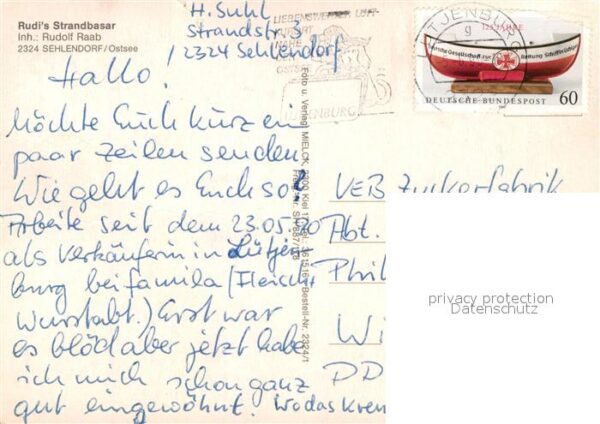 Rudi's Strandbasar
Inh.: Rudolf Raab
2324 SEHLENDORF/Ostsee
H. Suhl
Strandstr. 3
2324 Sehlendorf
Hallo!
Möchte Euch kurz ein
paar Zeilen senden
Wie geht es Euch so?
Arbeite seit dem 23.05.90
als Verkäuferin in Lütjen-
burg bei famila (Fleisch
Wurstabt.) Erst war
es blöd aber jetzt habe
ich mich schon ganz
gut eingewöhnt. Wo das Kreu
Foto u. Verlag MIELCK, 2300 Kiel 17
Bestell-Nr. 2324/1
LIEBENSWERTER LUFT-
KURORT
NAHE
OSTSEE
LÜTJENBURG
TJENBURG
125 JAHRE
Deutsche Gesellschaft zur Rettung Schiffbrüchiger
DEUTSCHE BUNDESPOST 60
VEB Zuckerfabrik
Abt.
Phil
Wi
DD
privacy protection
Datenschutz